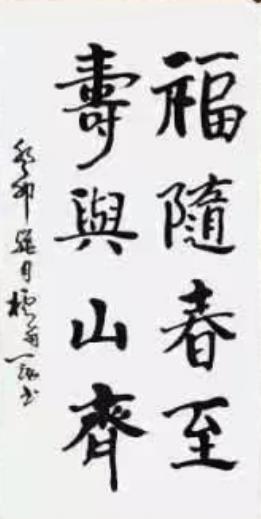 福隨春至
壽與山齊
癸卯
月
一
书